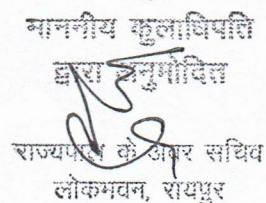 माननीय कुलाधिपति
द्वारा अनुमोदित
राज्यपाल के अवर सचिव
लोकभवन, रायपुर